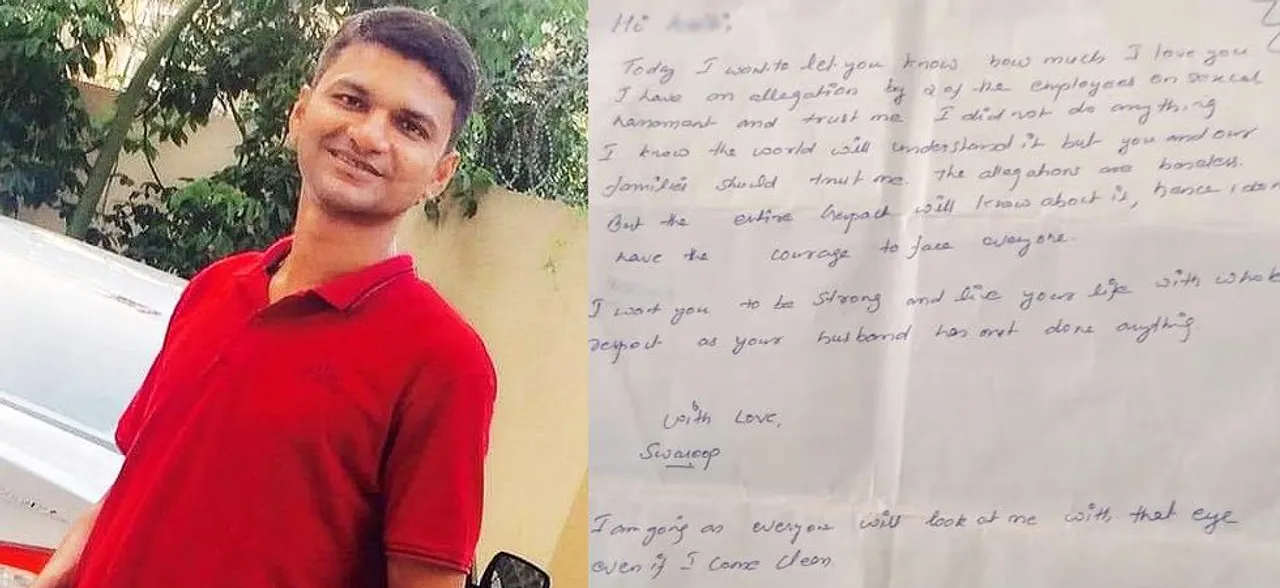 Hi
Today I want to let you know how much I love you
I have an allegation by 2 of the employees on sexual
harrasment and trust me I did not do anything
I know the world will understand it but you and our
families should trust me. The allegations are baseless.
But the entire Genpact will know about it, hence I don
have the courage to face everyone.
I want you to be strong and live your life with whole
respect as your husband has not done anything
With Love,
Swaroop
I am going as everyone will look at me with that eye
even if I come clean